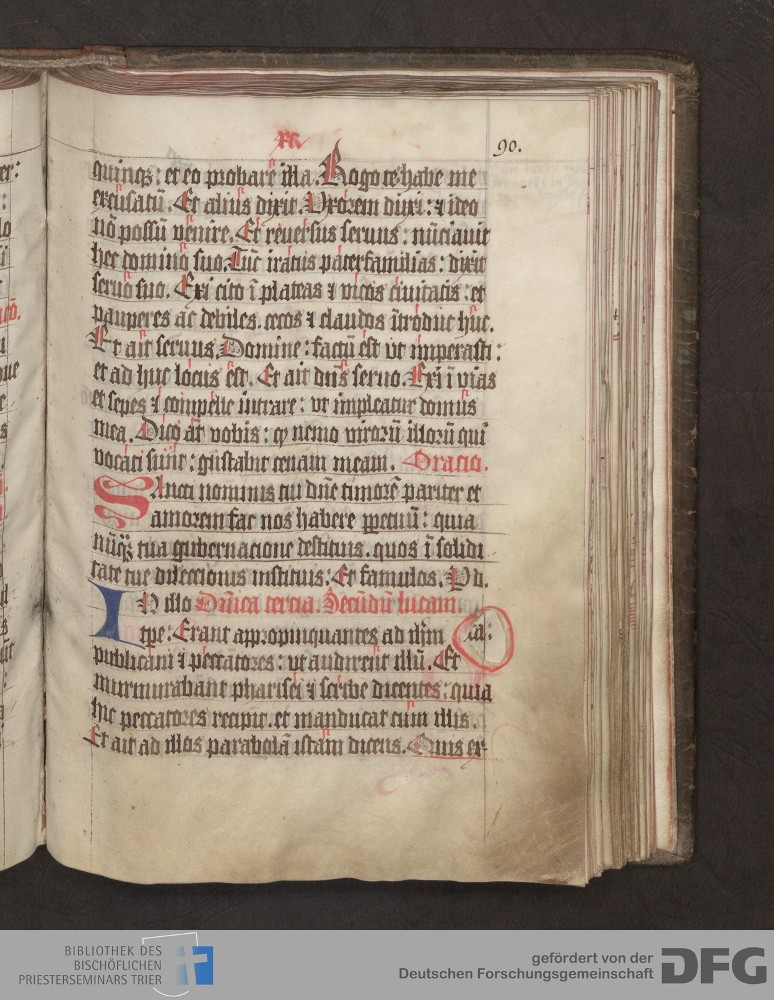 90.
quinqꝫ: et eo probare illa. Rogo te habe me
excusatū. Et alius dixit. Vxorem duxi: ⁊ ideo
nō possū venire. Et reuersus seruus: nūciauit
hec domino suo. Tūc iratus paterfamilias: dixit
seruo suo. Exi cito ī plateas ⁊ vicos ciuitatis: et
pauperes ac debiles. cecos ⁊ claudos ītroduc huc.
Et ait seruus. Domine: factū est vt imperasti:
et ad huc locus est. Et ait dn̄s seruo. Exi ī vias
et sepes ⁊ compelle intrare: vt impleatur domus
mea. Dico āt vobis: ꝙ nemo virorū illorū qui
vocati sunt: gustabit cenam meam. Oracio.
Sancti nominis tui dn̄e timorē pariter et
amorem fac nos habere ꝑpetuū: quia
nūqꝫ tua gubernacione destituis. quos ī solidi
tate tue dileccionis instituis: Et famulos. Pd.
IN illo Dn̄ica tercia. Secūdū lucam.
tꝑe: Erant appropinquantes ad ih̄m
publicani ⁊ peccatores: vt audirent illū. Et
murmurabant pharisei ⁊ scribe dicentes: quia
hic peccatores recipit. et manducat cum illis.
Et ait ad illos parabolā istam dicens. Quis ex
BIBLIOTHEK DES
BISCHÖFLICHEN
PRIESTERSEMINARS TRIER
gefördert von der
Deutschen Forschungsgemeinschaft DFG